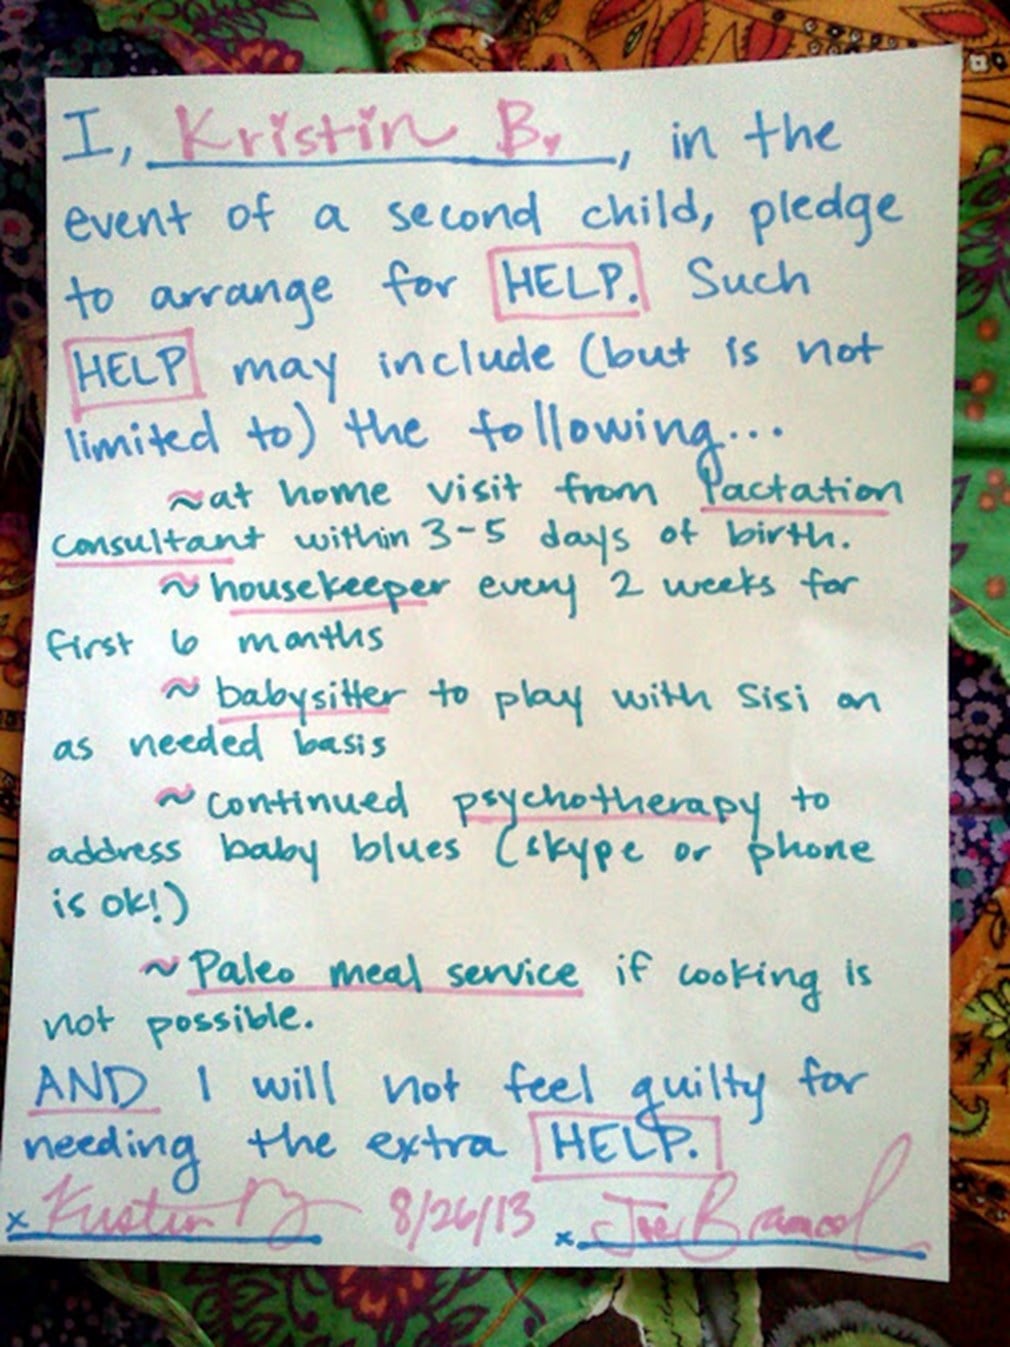 I, Kristin B., in the
event of a second child, pledge
to arrange for HELP. Such
HELP may include (but is not
limited to) the following...
~at home visit from lactation
consultant within 3-5 days of birth.
~ housekeeper every 2 weeks for
first 6 months
~ babysitter to play with Sisi on
as needed basis
~ continued psychotherapy to
address baby blues (skype or phone
is ok!)
~ Paleo meal service if cooking is
not possible.
AND I will not feel guilty for
needing the extra HELP.
x Kristin B 8/26/13 x Joe